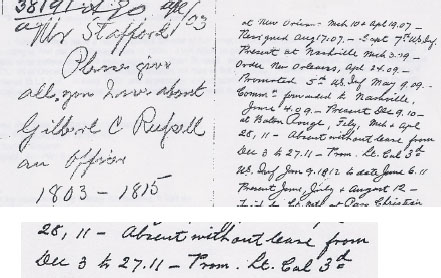 Mr Stafford
Please give
all you have about
Gilbert C Russell
an Officer
1803 - 1815
at New Orleans - Mch 10 & Apl 19.07 -
Resigned Aug 17.07 - Capt 7th US Inf.
Present at Nashville Mch 3.09 -
Order New Orleans, Apl 24.09 -
Promoted 5th US Inf May 9.09 -
Comm. forwarded to Nashville,
June 4.09 - Present Dec 9.10 -
at Baton Rouge, Feby, Mch & Apl
28, 11 - Absent without leave from
Dec 3 to 27.11 - Prom. Lt. Col 3rd
US Inf Jan 9.1812 to date June 6.11
Present June, July & August 12 -
at Pass Christian
28, 11 - Absent without leave from
Dec 3 to 27.11 - Prom. Lt. Col 3rd